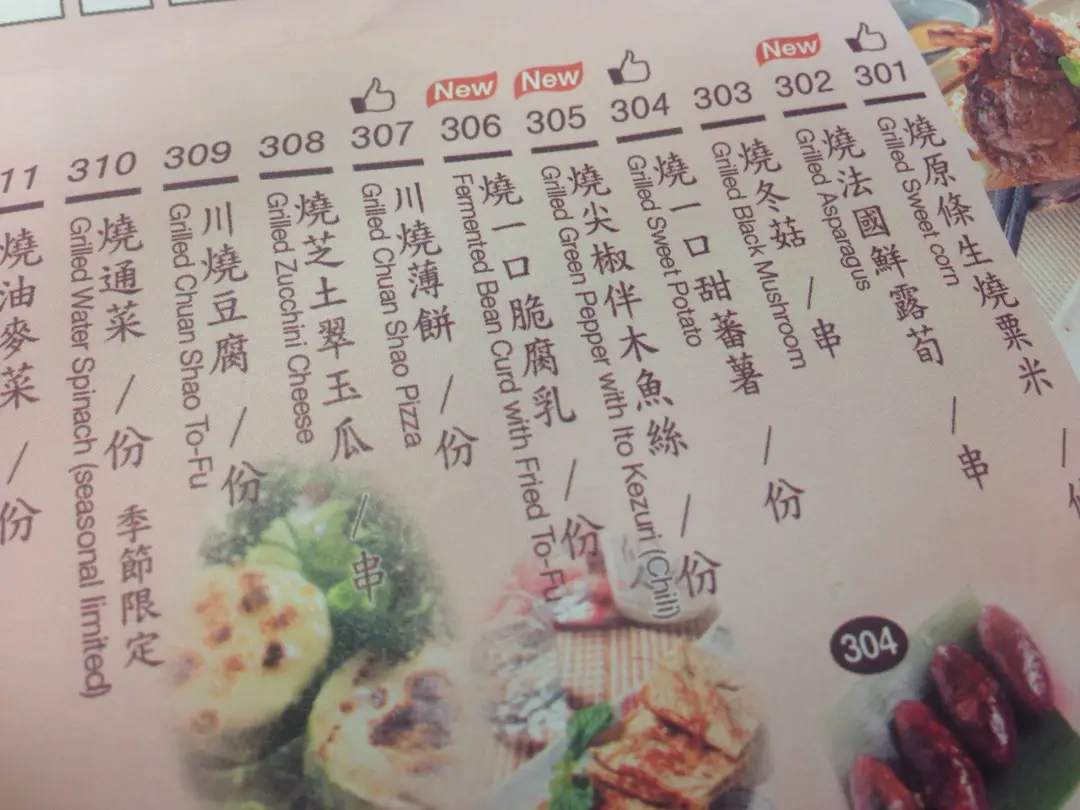 301
燒原條生燒粟米 /
Grilled Sweet corn
New
302
燒法國鮮露荀 / 串
Grilled Asparagus
303
燒冬菇 / 串
Grilled Black Mushroom
304
燒一口甜蕃薯 / 份
Grilled Sweet Potato
New
305
燒尖椒伴木魚絲 / 份
Grilled Green Pepper with Ito Kezuri (Chili)
New
306
燒一口脆腐乳 / 份
Fermented Bean Curd with Fried To-Fu
307
川燒薄餅 / 份
Grilled Chuan Shao Pizza
308
燒芝士翠玉瓜 / 串
Grilled Zucchini Cheese
309
川燒豆腐 / 份
Grilled Chuan Shao To-Fu
310
燒通菜 / 份 季節限定
Grilled Water Spinach (seasonal limited)
11
燒油麥菜 / 份
304